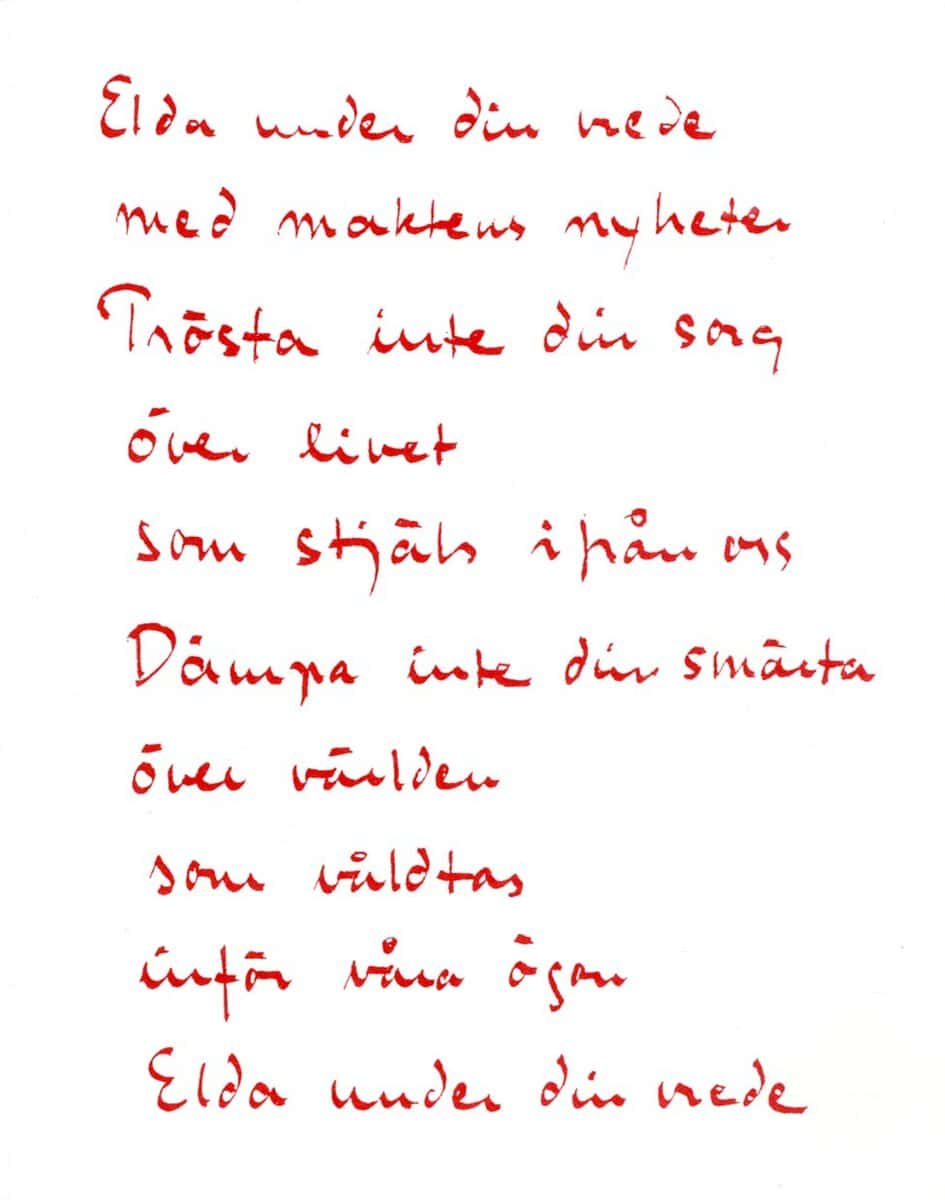 Elda under din vrede
med maktens nyheter
Trösta inte din sorg
över livet
som stjäls ifrån oss
Dämpa inte din smärta
över världen
som våldtas
inför våra ögon
Elda under din vrede